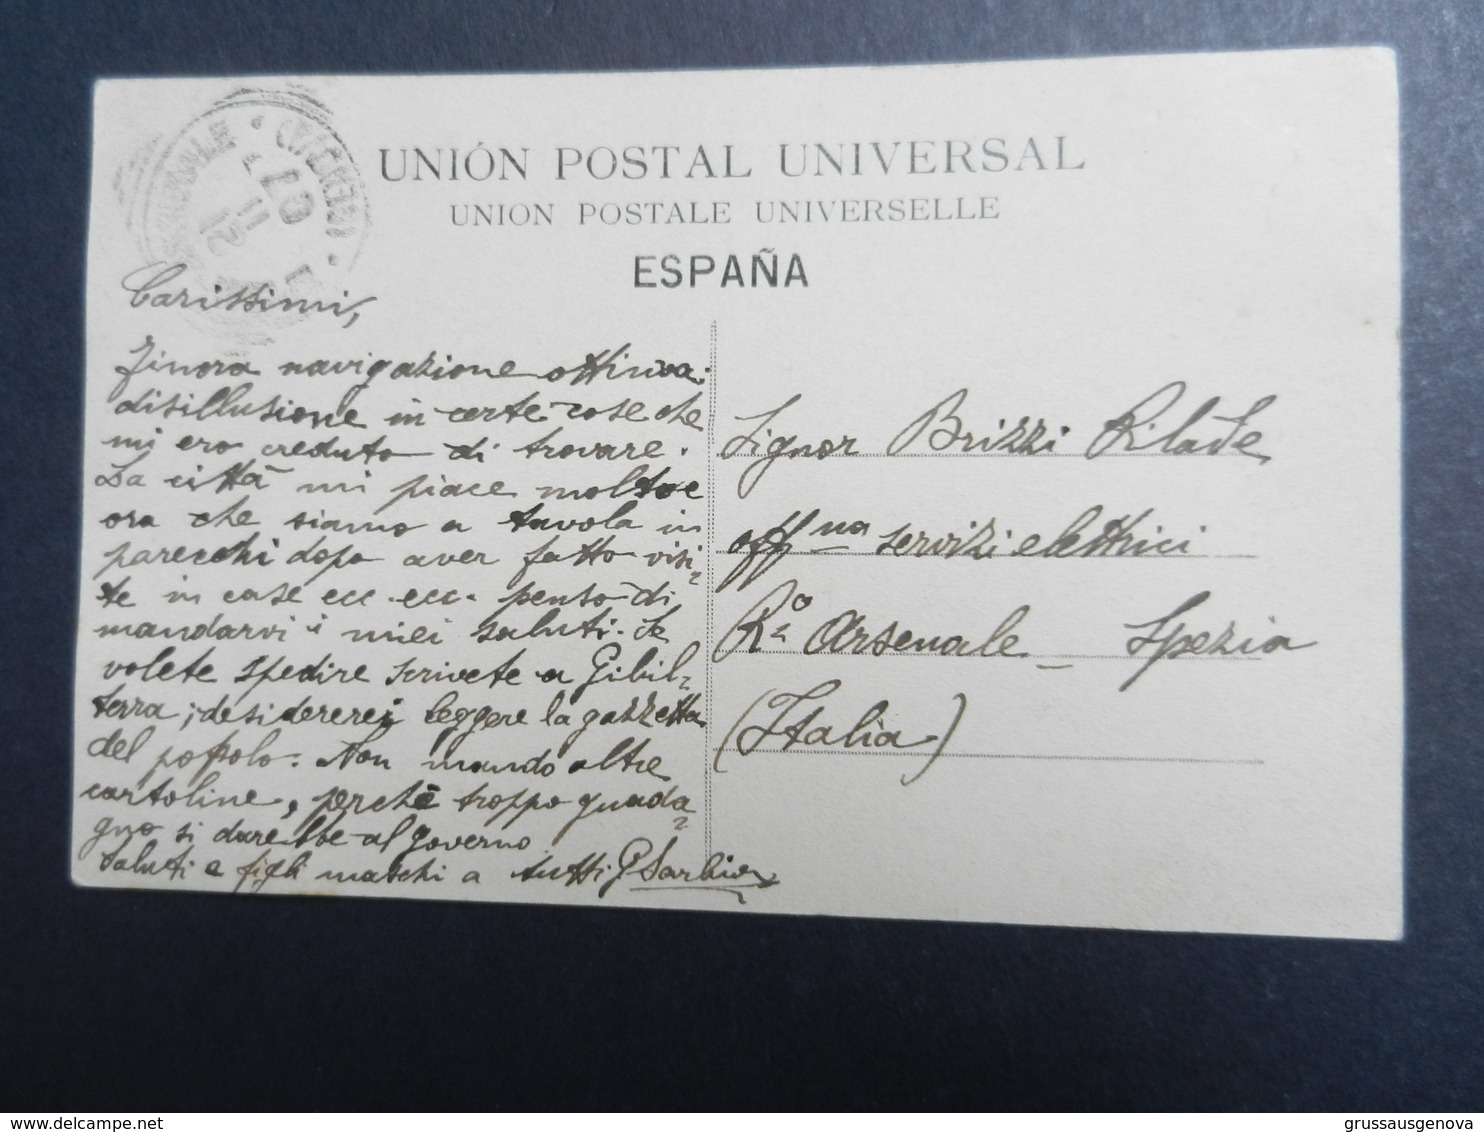 UNIÓN POSTAL UNIVERSAL
UNION POSTALE UNIVERSELLE
ESPAÑA
Carissimi,
Finora navigazione ottima.
disillusione in certe cose che
mi ero creduto di trovare.
La città mi piace molto e
ora che siamo a tavola in
parecchi dopo aver fatto visi=
te in case ecc. ecc. penso di
mandarvi i miei saluti. Se
volete spedire scrivete a Gibil=
terra; desidererei leggere la gazzetta
del popolo. Non mando altre
cartoline, perchè troppo guada=
gno si darebbe al governo
Saluti e figli maschi a tutti
Signor Brizzi Pilade
offna servizi elettrici
Ro Arsenale - Spezia
(Italia)
delcampe.net
grussausgenova